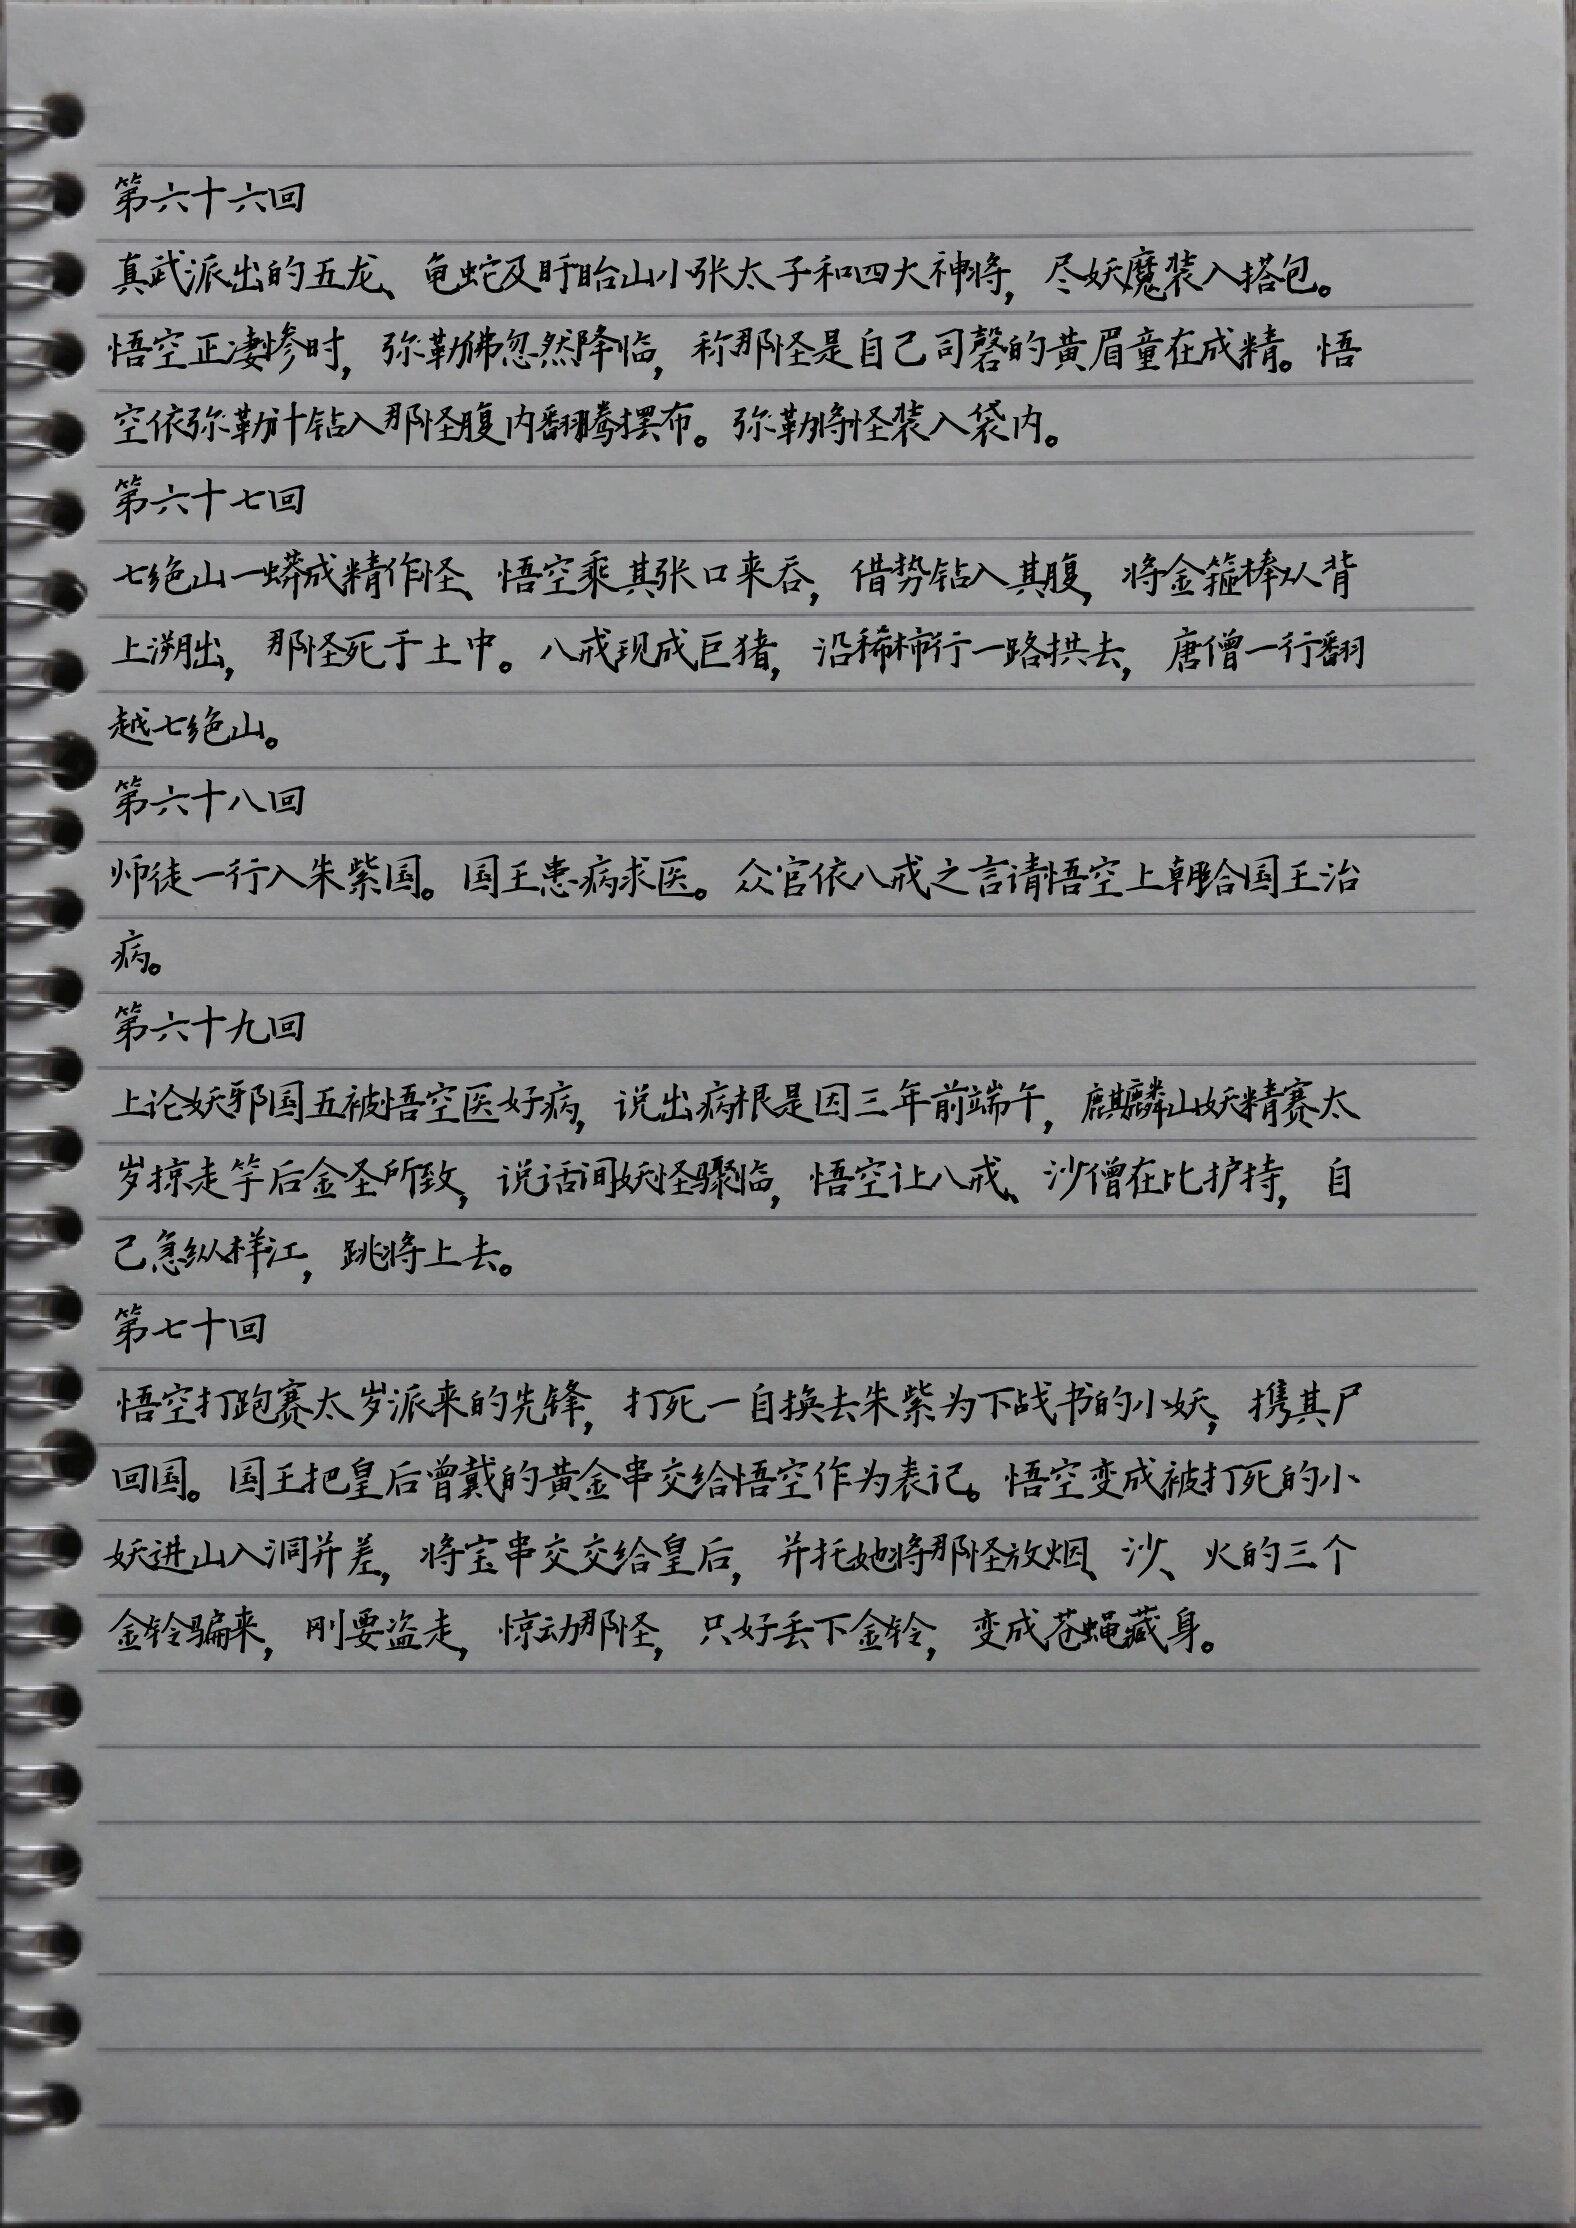 第六十六回
真武派出的五龙、龟蛇及盱眙山小张太子和四大神将，尽妖魔装入搭包。
悟空正凄惨时，弥勒佛忽然降临，称那怪是自己司磬的黄眉童在成精。悟
空依弥勒计钻入那怪腹内翻腾摆布。弥勒将怪装入袋内。
第六十七回
七绝山一蟒成精作怪、悟空乘其张口来吞，借势钻入其腹，将金箍棒从背
上溯出，那怪死于土中。八戒现成巨猪，沿稀柿行一路拱去，唐僧一行翻
越七绝山。
第六十八回
师徒一行入朱紫国。国王患病求医。众官依八戒之言请悟空上朝给国王治
病。
第六十九回
上论妖邪国五被悟空医好病，说出病根是因三年前端午，麒麟山妖精赛太
岁掠走竽后金圣所致，说话间妖怪骤临，悟空让八戒、沙僧在比护持，自
己急纵样江，跳将上去。
第七十回
悟空打跑赛太岁派来的先锋，打死一自换去朱紫为下战书的小妖，携其尸
回国。国王把皇后曾戴的黄金串交给悟空作为表记。悟空变成被打死的小
妖进山入洞并差，将宝串交交给皇后，并托她将那怪放烟、沙、火的三个
金铃骗来，刚要盗走，惊动那怪，只好丢下金铃，变成苍蝇藏身。